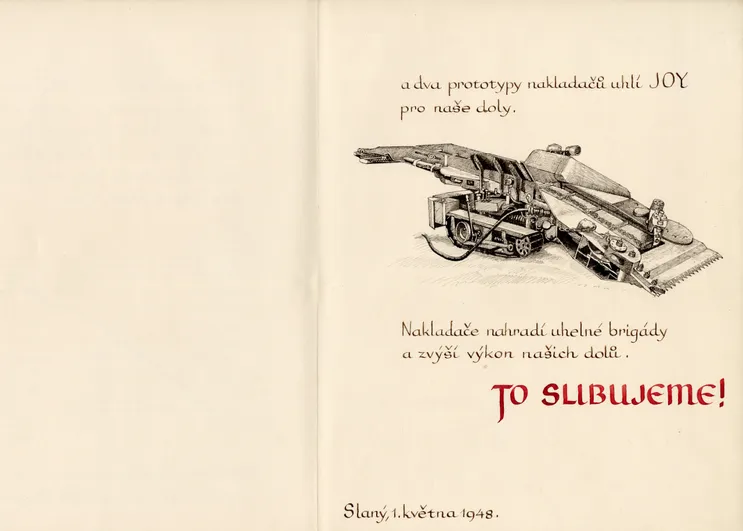 a dva prototypy nakladačů uhlí JOY
pro naše doly.
Nakladače nahradí uhelné brigády
a zvýší výkon našich dolů.
TO SLIBUJEME!
Slaný, 1. května 1948.